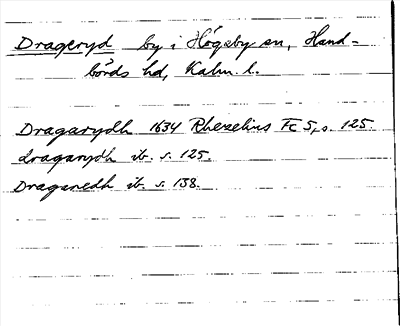 Drageryd by i Högsby sn, Hand-
börds hd, Kalm. l.
Dragarydh 1634 Rhezelius Fc 5, s. 125.
dragarydh ib. s. 125.
Dragenedh ib. s. 138.